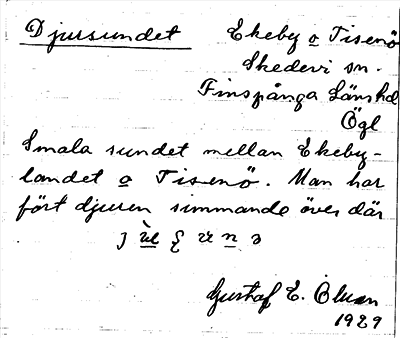 Djursundet Ekeby o Tisenö
Skedevi sn.
Finspånga Länshd
Ögl
Smala sundet mellan Ekeby-
landet o Tisenö. Man har
fört djuren simmande över där
Gustaf E.
1929